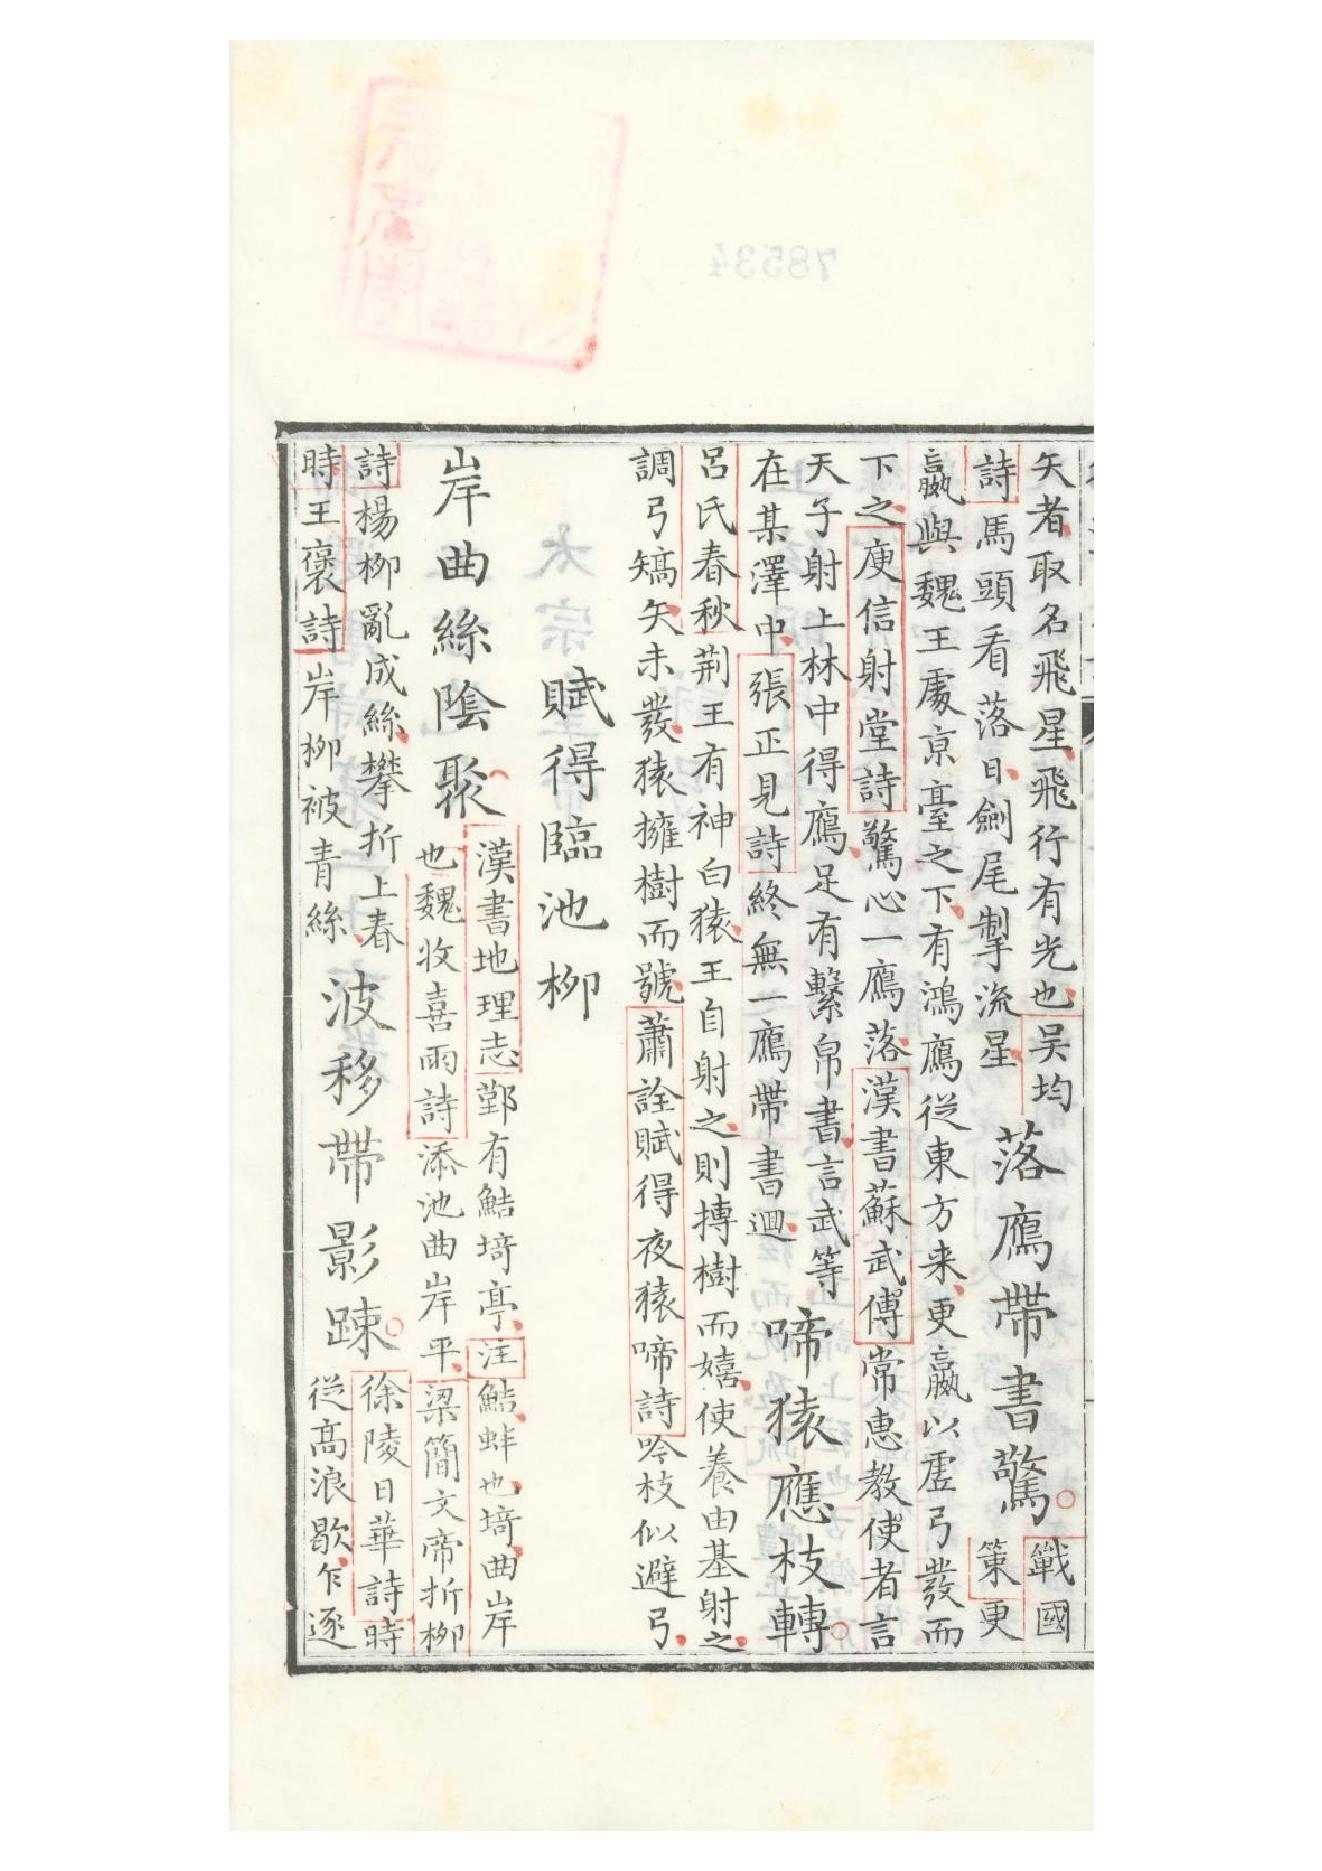 矢者取名飛星飛行有光也吳均
詩馬頭看落日劍尾掣流星
落鴈帶書驚
戰國
策更
嬴與魏王處京臺之下有鴻鴈從東方来更嬴以虛弓發而
下之庾信射堂詩驚心一鴈落漢書蘇武傳常惠教使者言
天子射上林中得鴈足有繫帛書言武等
在某澤中張正見詩終無一鴈帶書迴
啼猿應枝轉
呂氏春秋荆王有神白猿王自射之則搏樹而嬉使養由基射之
調弓矯矢未發猿擁樹而號蕭詮賦得夜猿啼詩吟枝似避弓
賦得臨池柳
岸曲絲陰聚
漢書地理志鄞有鮚埼亭注鮚蚌也埼曲岸
也魏收喜雨詩添池曲岸平梁簡文帝折柳
詩楊柳亂成絲攀折上春
時王褒詩岸柳被青絲
波移帶影踈
徐陵日華詩時
從高浪歇乍逐
78534